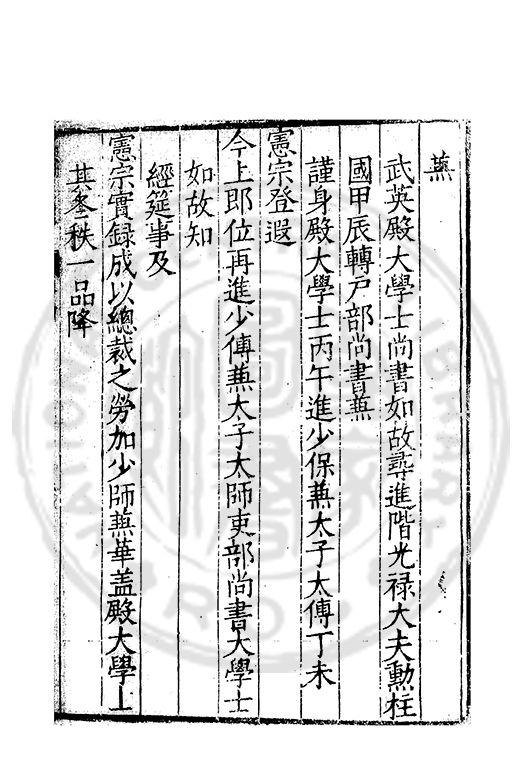 蕪
武英殿大學士尚書如故尋進階光禄大夫勲柱
國甲辰轉户部尚書蕪
謹身殿大學士丙午進少保蕪太子太傅丁未
憲宗登遐
今上即位再進少傅蕪太子太師吏部尚書大學士
如故知
經筵事及
憲宗實録成以總裁之勞加少師蕪華盖殿大學士
其參秩一品降